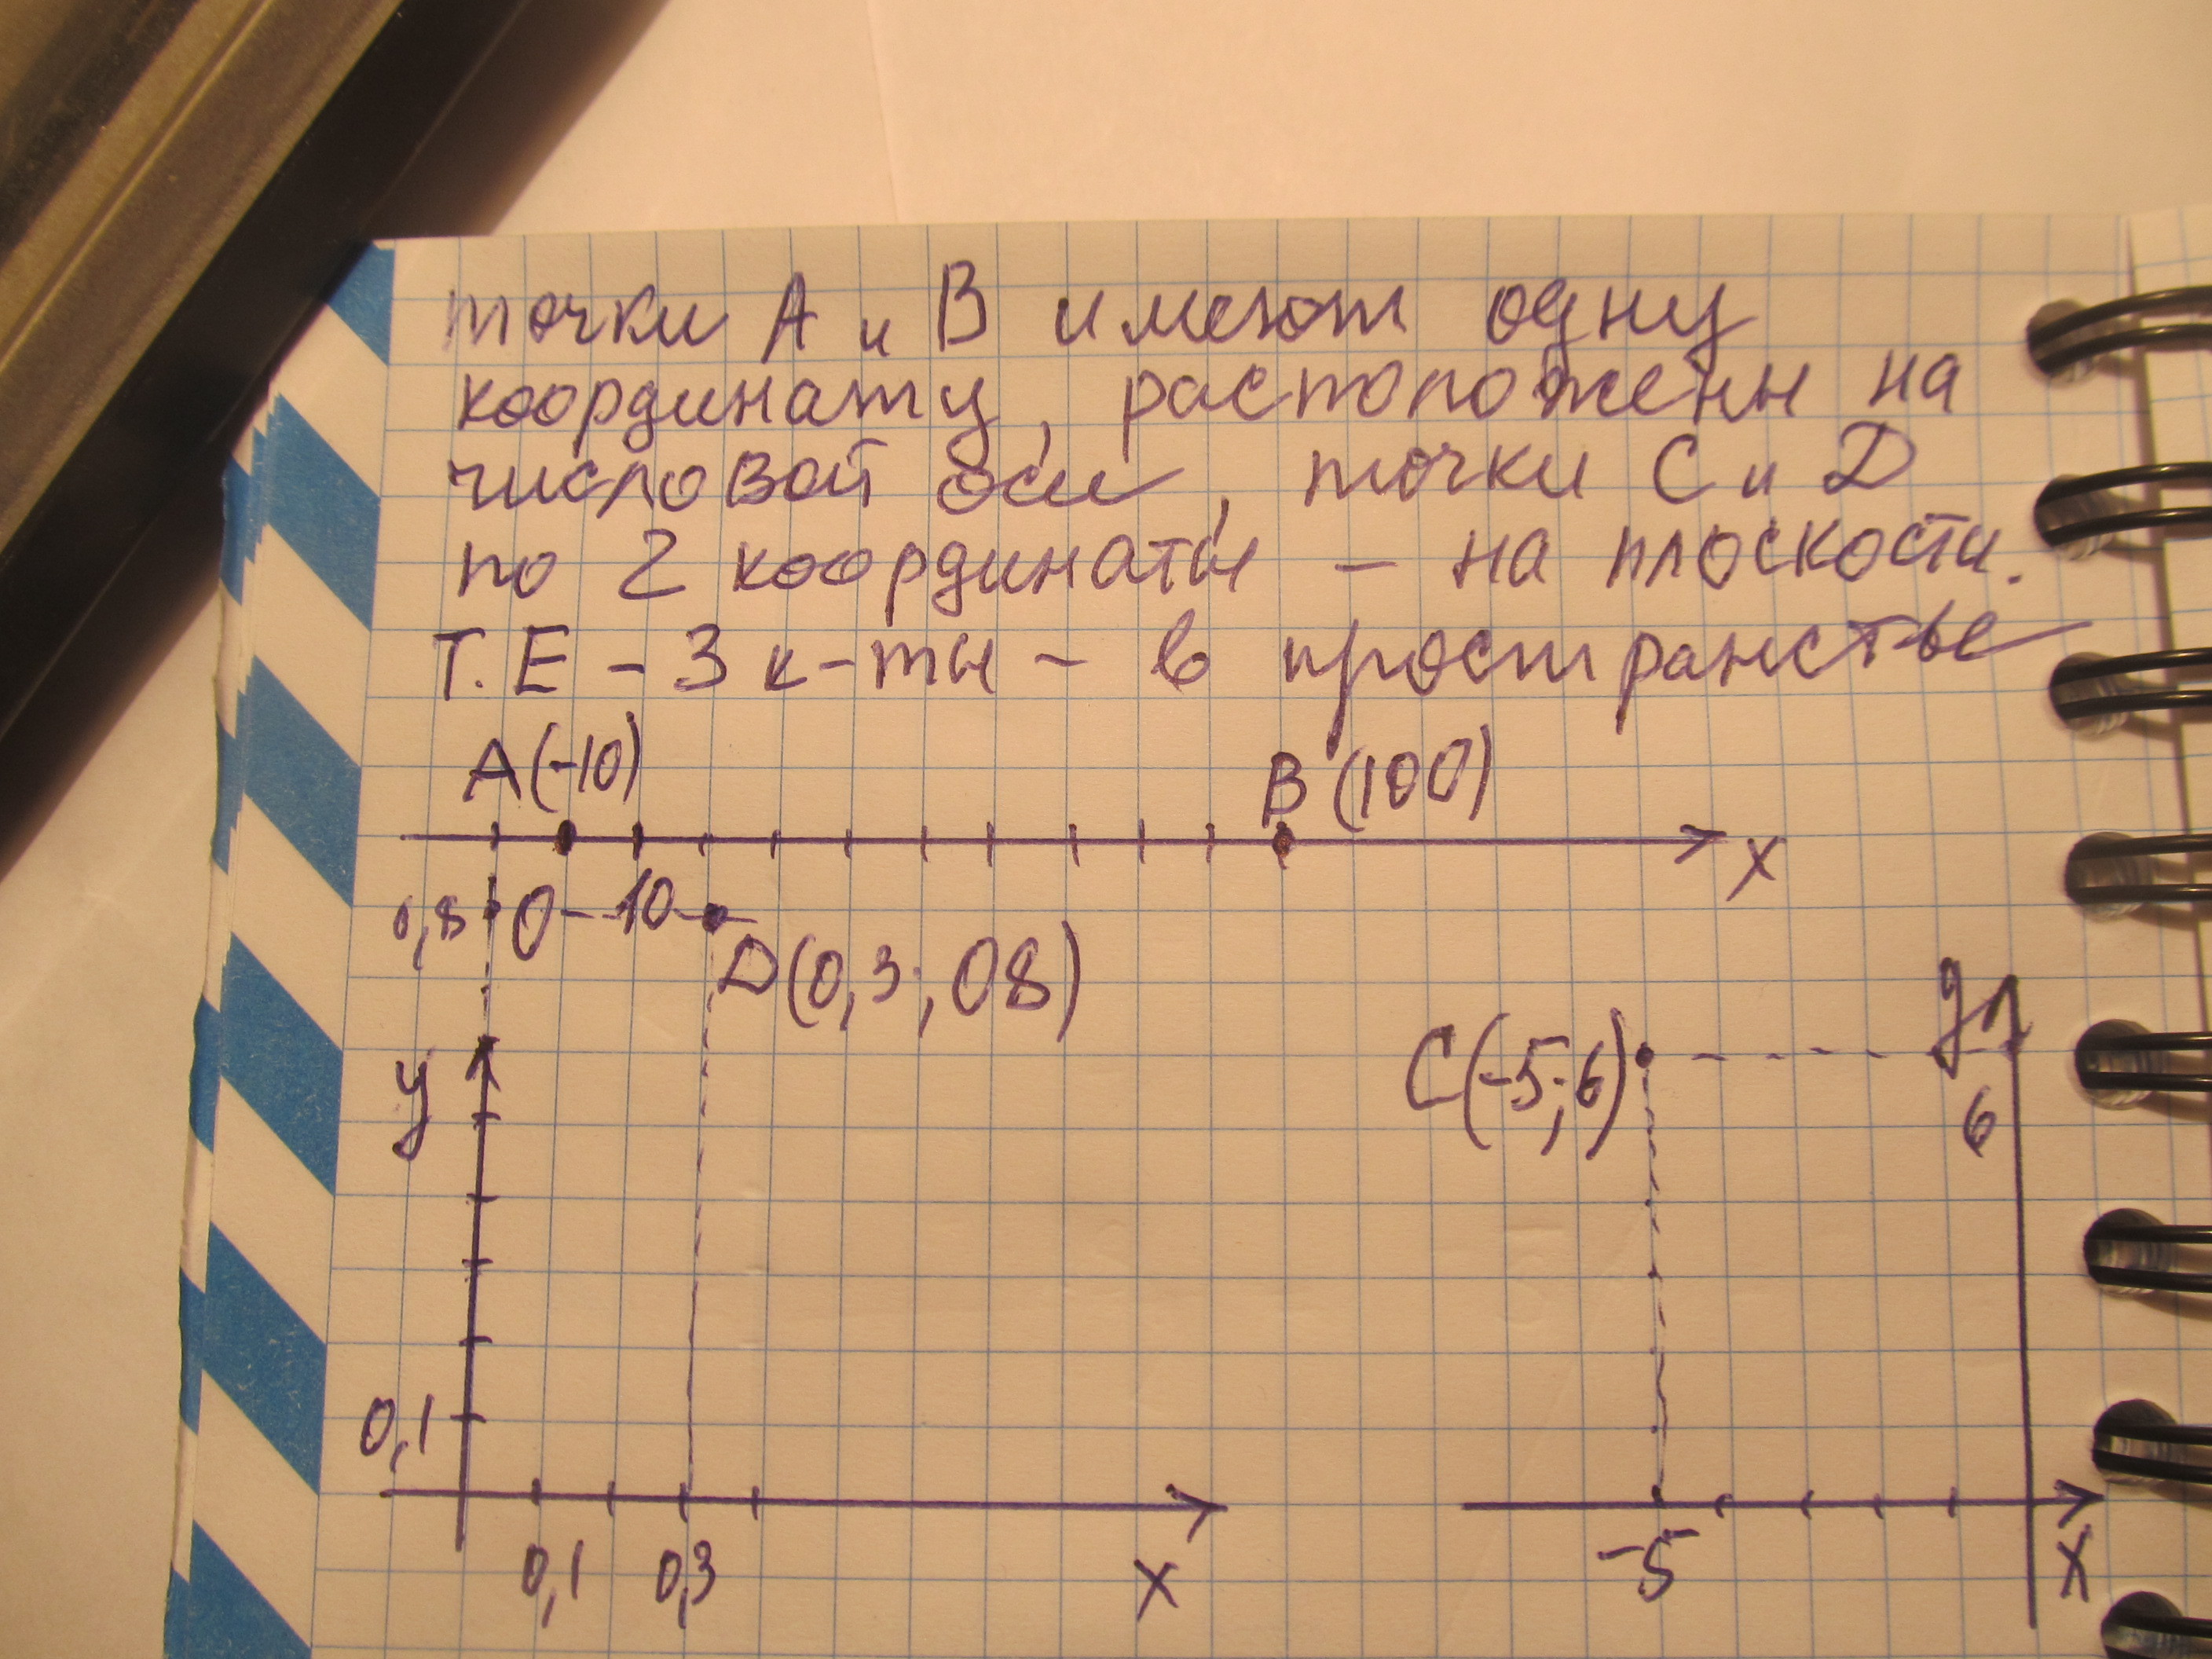 точки А и В имеют одну
координату, расположены на
числовой оси, точки С и D
по 2 координаты – на плоскости.
Т. Е – 3 к-ты – в пространстве
А(-10)
В (100)
X
0,8 0 10
D(0,3; 08)
y
C(-5; 6)
y
6
0,1
0,1 0,3 X
-5 X